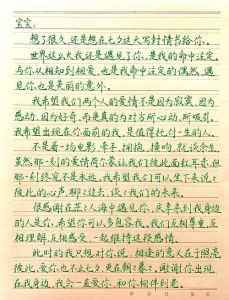 宝宝：
想了很久，还是想在七夕这天写封情书给你。
世界这么大我还是遇见了你，是我的命中注定。
与你从相知到相爱，也是我命中注定的偶然，遇
见你，也是美丽的意外。
我希望我们两个人的爱情不是因为寂寞，因为
感动，因为好奇，而是真的为对方所心动，所吸引。
我希望出现在你面前的我，是值得托付一生的人。
不是看一场电影，牵手，拥抱，接吻，就说余生
虽然那一刻的爱情荷尔蒙让我们彼此面红耳赤，但
那一刻终究不是永远，我希望我们可以坐下来说
彼此的心声，聊过去，谈我们的未来。
很感谢在茫茫人海中遇见你，庆幸来到我身边
的人是你，希望你可以多包容我，我们互相尊重，互
相理解，互相感受，一起维持这段感情。
此时的我只想对你说，相逢的意义在于照亮
彼此，爱你也不止七夕，更在朝朝暮暮，谢谢你出现
在我身边，我会一直爱你，和你相伴到老。
年 月 日